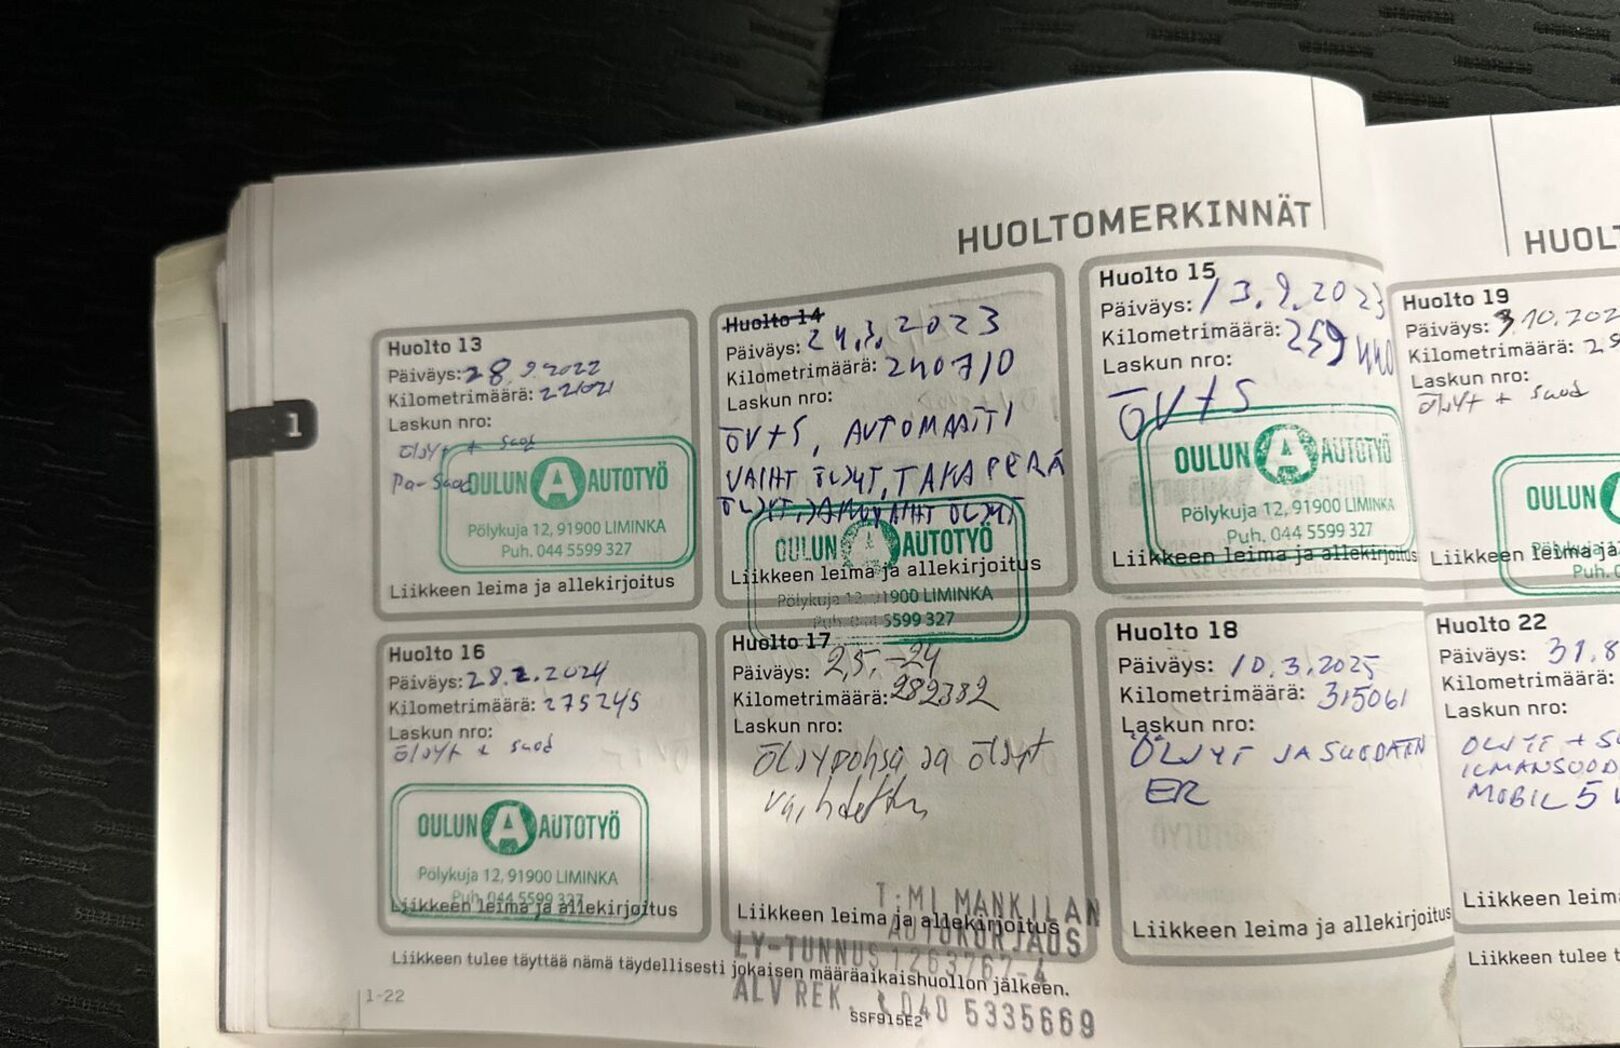 HUOLTOMERKINNÄT
1
Huolto 13
Päiväys: 28.9.2022
Kilometrimäärä: 221021
Laskun nro:
ÖLJYT + suod
Pa-Suod
OULUN A AUTOTYÖ
Pölykuja 12, 91900 LIMINKA
Puh. 044 5599 327
Liikkeen leima ja allekirjoitus
Huolto 14
Päiväys: 24.3.2023
Kilometrimäärä: 240710
Laskun nro:
ÖV+S, AUTOMAATTI
VAIHT ÖLJYT, TAKAPERÄ
ÖLJYT, JAKOVAIHT ÖLJYT
OULUN A AUTOTYÖ
Liikkeen leima ja allekirjoitus
Pölykuja 12, 91900 LIMINKA
Puh. 044 5599 327
Huolto 15
Päiväys: 13.9.2023
Kilometrimäärä: 259440
Laskun nro:
ÖV+S
OULUN A AUTOTYÖ
Pölykuja 12, 91900 LIMINKA
Puh. 044 5599 327
Liikkeen leima ja allekirjoitus
Huolto 16
Päiväys: 28.2.2024
Kilometrimäärä: 275245
Laskun nro:
öljyt + suod
OULUN A AUTOTYÖ
Pölykuja 12, 91900 LIMINKA
Puh. 044 5599 327
Liikkeen leima ja allekirjoitus
Huolto 17
Päiväys: 2,5.-24
Kilometrimäärä: 282382
Laskun nro:
Öljypohja ja öljyt
vaihdettu
Liikkeen leima ja allekirjoitus
T:MI MANKILAN
AUTOKORJAUS
LY-TUNNUS 1263767-4
ALV REK. 040 5335669
Huolto 18
Päiväys: 10.3.2025
Kilometrimäärä: 315061
Laskun nro:
ÖLJYT JA SUODATIN
ER
Liikkeen leima ja allekirjoitus
Liikkeen tulee täyttää nämä täydellisesti jokaisen määräaikaishuollon jälkeen.
1-22
SSF915E2
HUOLT
Huolto 19
Päiväys: 3.10.202
Kilometrimäärä: 29
Laskun nro:
öljyt + suod
OULUN
Liikkeen leima ja
Huolto 22
Päiväys: 31.8
Kilometrimäärä:
Laskun nro:
ÖLJYT + S
ILMANSUOD
MOBIL 5
Liikkeen leim
Liikkeen tulee t